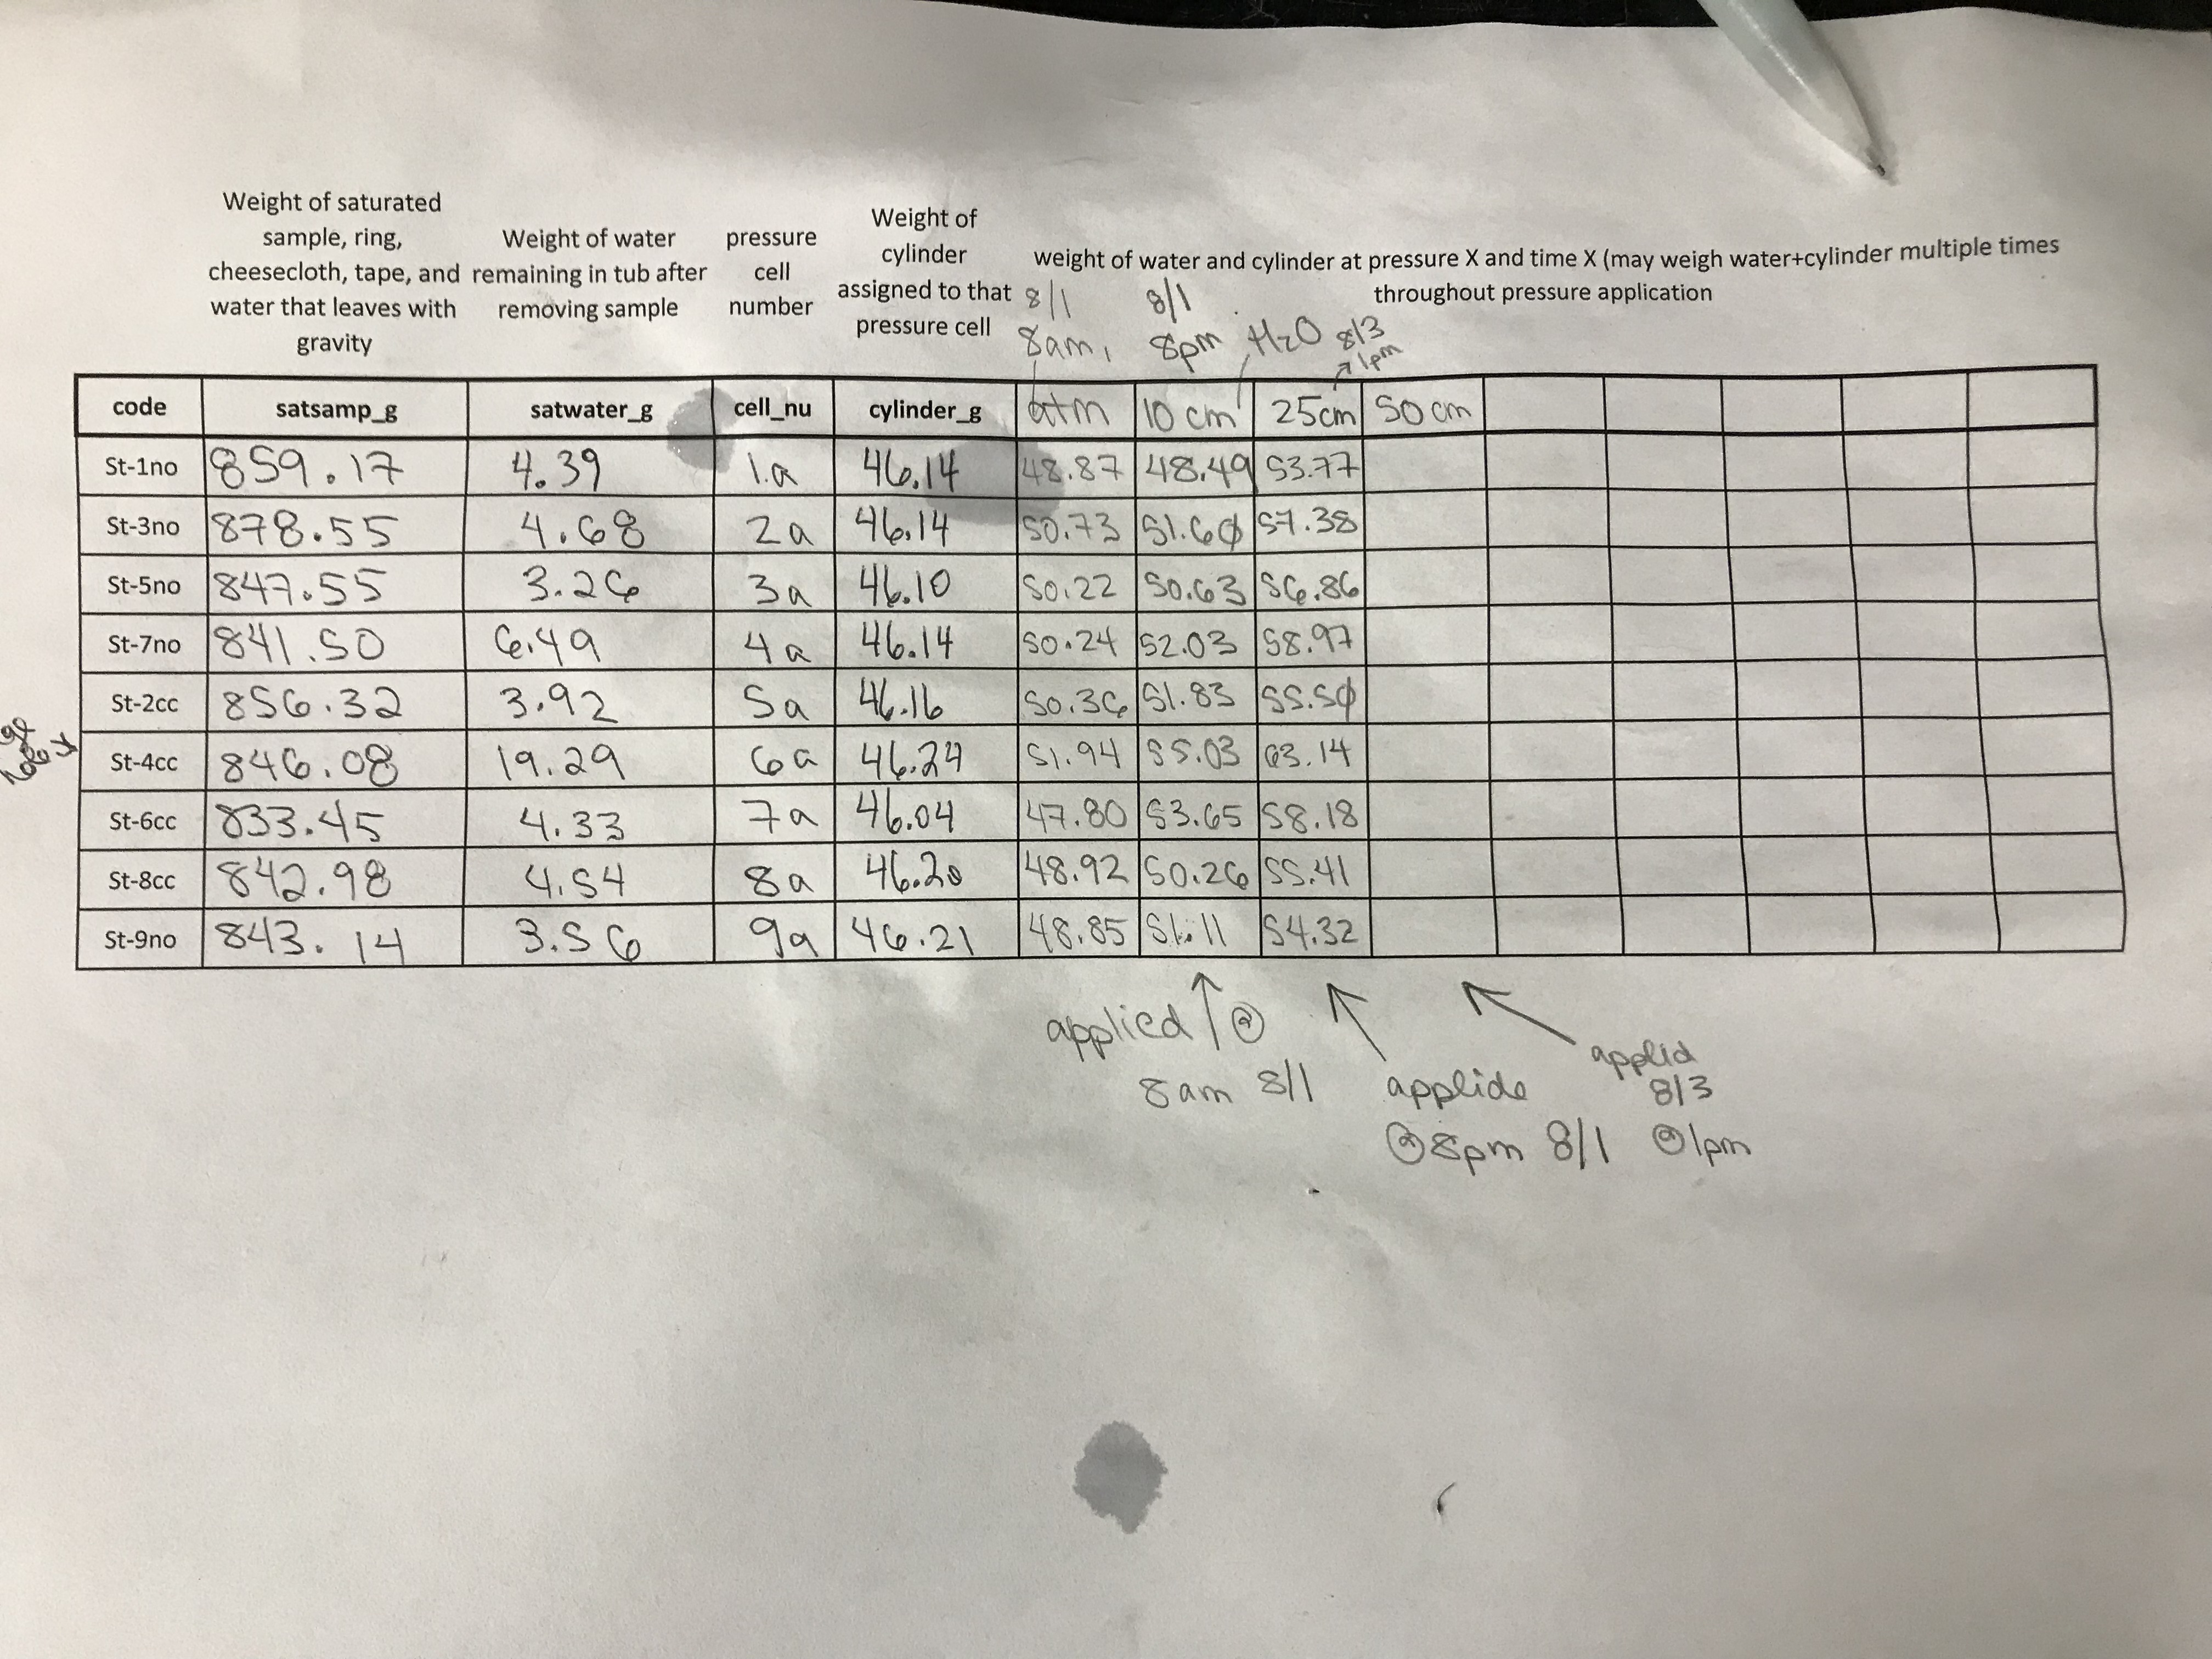 Weight of saturated
sample, ring,
cheesecloth, tape, and
water that leaves with
gravity
Weight of water
remaining in tub after
removing sample
pressure
cell
number
Weight of
cylinder
assigned to that
pressure cell
weight of water and cylinder at pressure X and time X (may weigh water+cylinder multiple times
throughout pressure application
8/1 8am,
8/1 8pm
H2O
8/3 1pm
code satsamp_g satwater_g cell_nu cylinder_g atm 10 cm 25cm 50 cm
St-1no 859.17 4.39 1a 46.14 48.87 48.49 53.77
St-3no 878.55 4.68 2a 46.14 50.73 51.60 57.38
St-5no 847.55 3.26 3a 46.10 50.22 50.63 56.86
St-7no 841.50 6.49 4a 46.14 50.24 52.03 58.97
St-2cc 856.32 3.92 5a 46.16 50.36 51.83 55.50
St-4cc 846.08 19.29 6a 46.24 51.94 55.03 63.14
St-6cc 833.45 4.33 7a 46.04 47.80 53.65 58.18
St-8cc 842.98 4.54 8a 46.20 48.92 50.26 55.41
St-9no 843.14 3.56 9a 46.21 48.85 51.11 54.32
applied @
8am 8/1
applide
@8pm 8/1
applid
8/3
@1pm